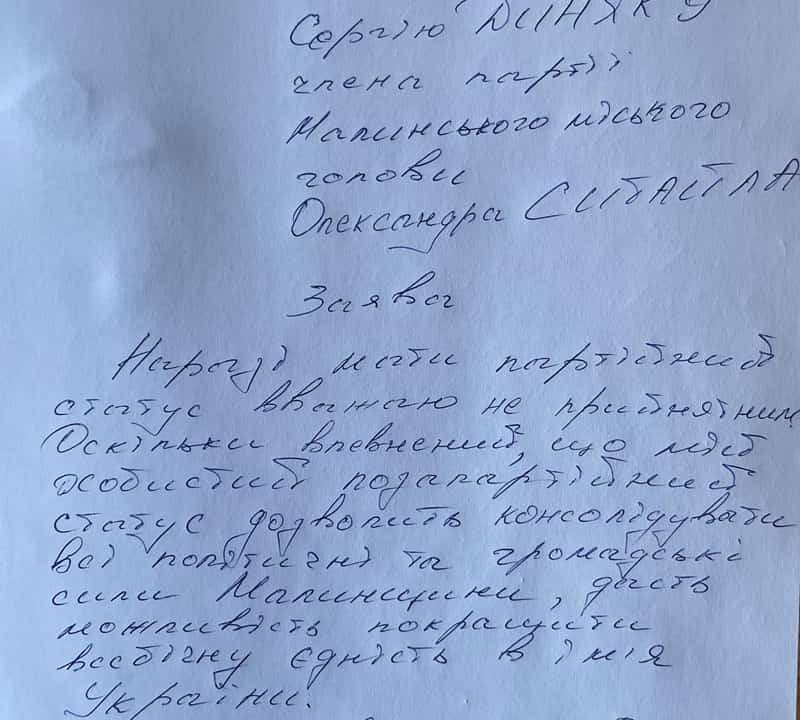 Сергію ДИНЯКУ
члена партії
Малинського міського
голови
Олександра СИТАЙЛА
Заява
Наразі мати партійний
статус вважаю не прийнятним
Оскільки впевнений, що мій
особистий позапартійний
статус дозволить консолідувати
всі політичні та громадські
сили Малинщини, дасть
можливість покращити
всебічну єдність в імія
України.